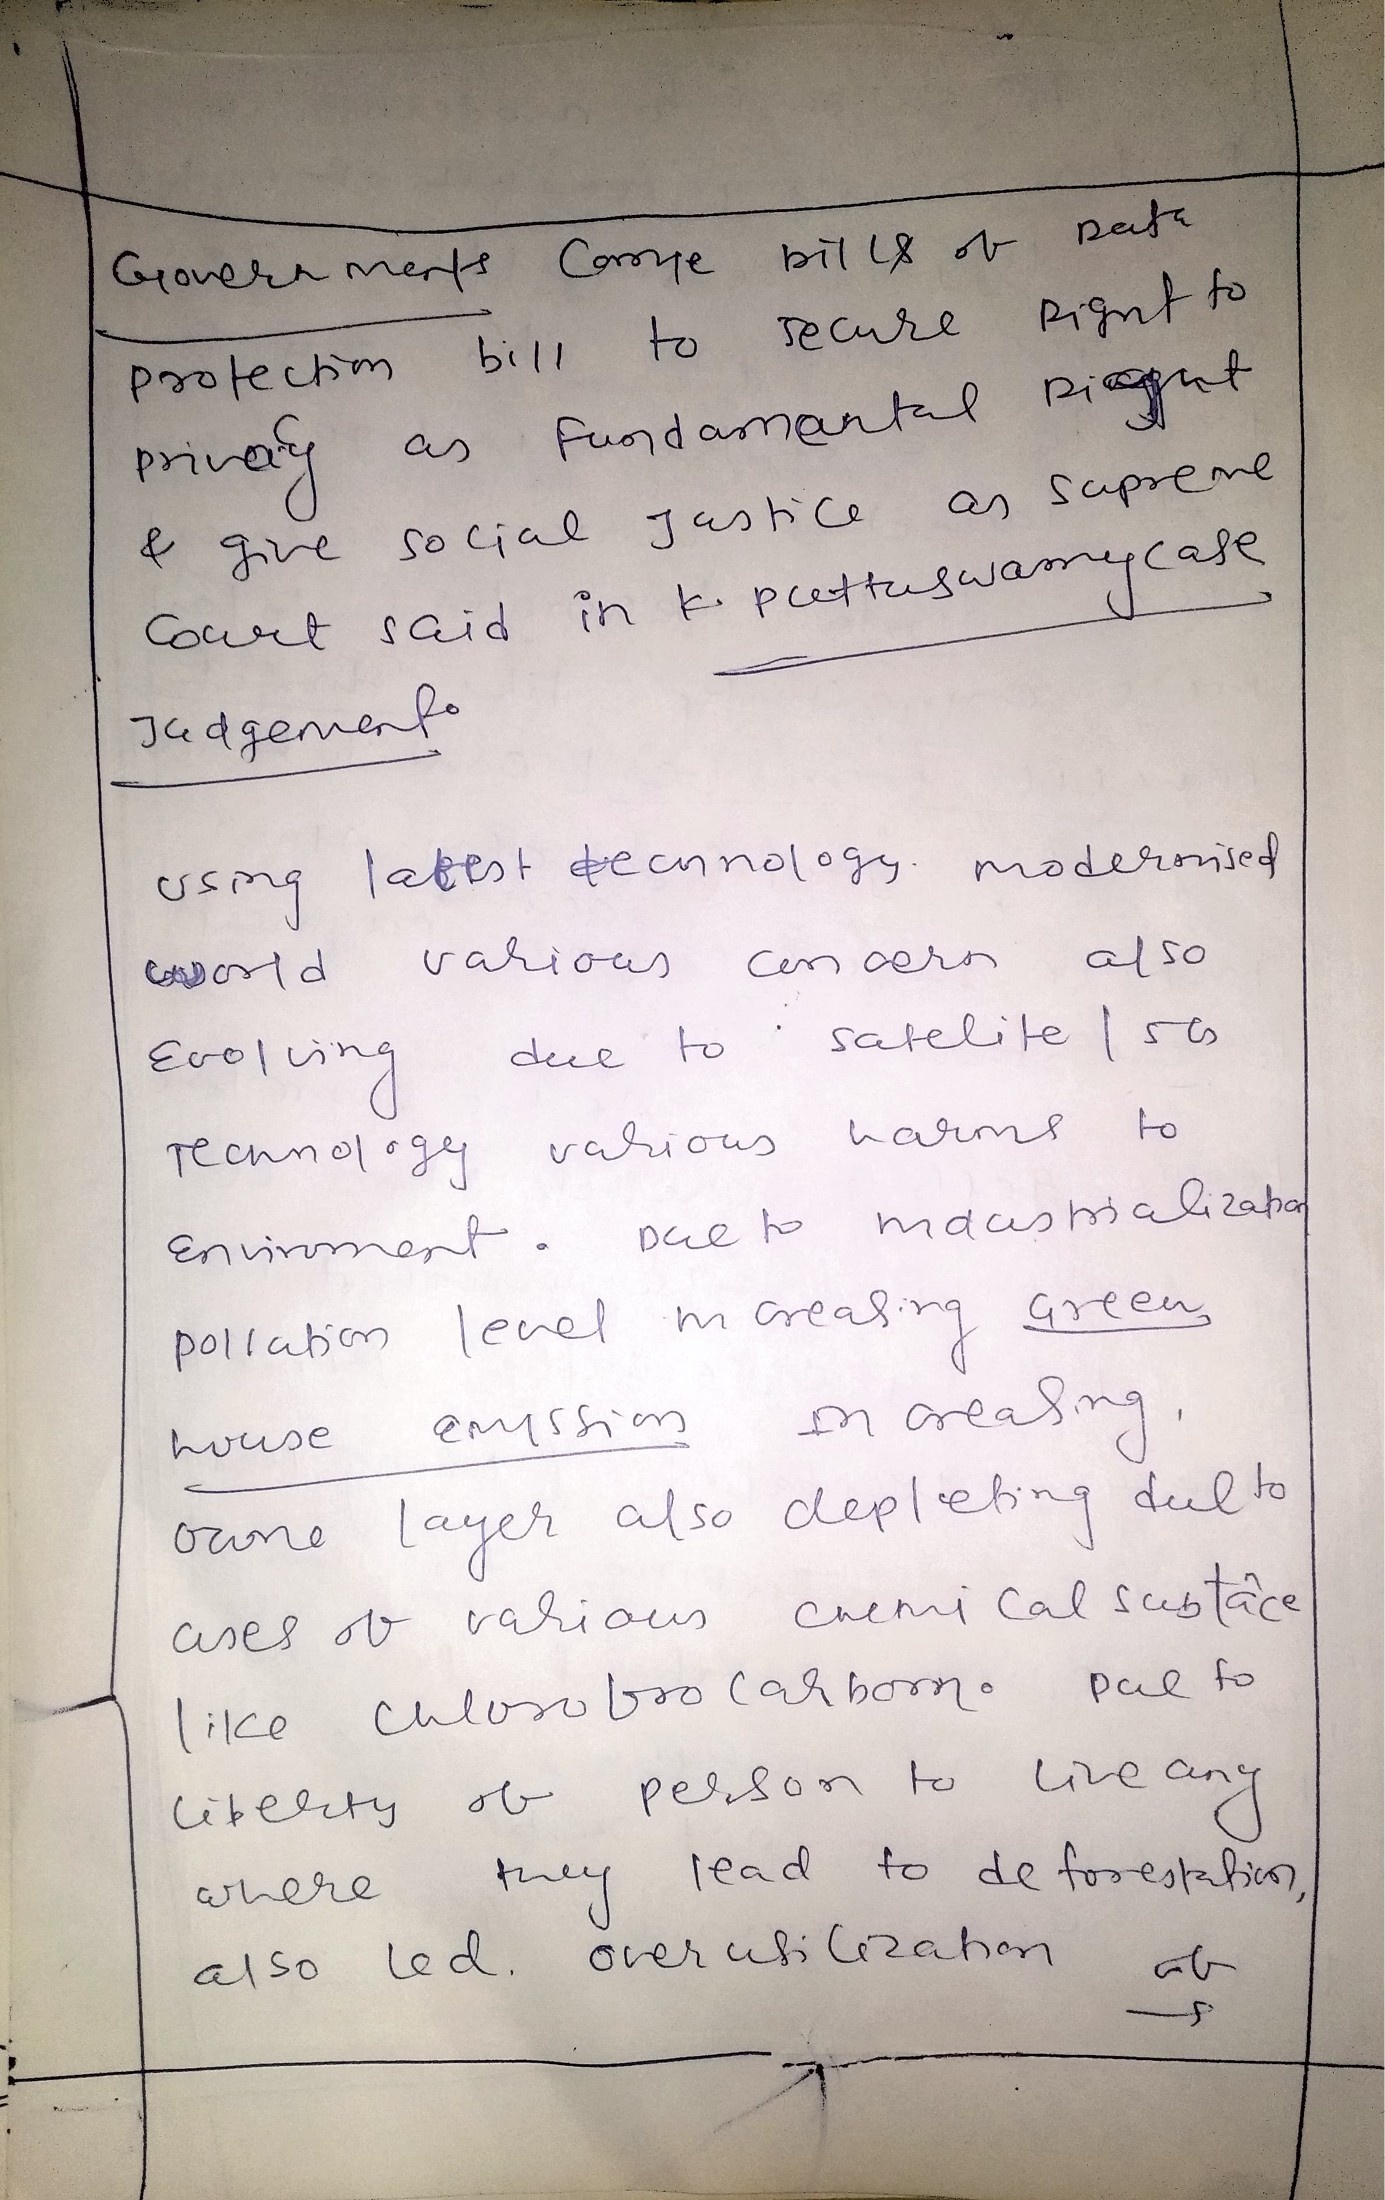 Governments Come bills of Data
protection bill to secure Right to
privacy as Fundamental Right
& give social Justice as supreme
Court said in K. Puttuswamy case
Judgement.
using latest technology. modernised
world various concern also
Evolving due to satelite / 5G
Technology various harms to
Enviroment. Due to industrialization
pollution level increasing Green
house emission increasing.
ozone layer also depleting due to
uses of various chemical substance
like chlorofrocarbon. Due to
liberty of person to live any
where they lead to deforestation,
also led. overutilization of